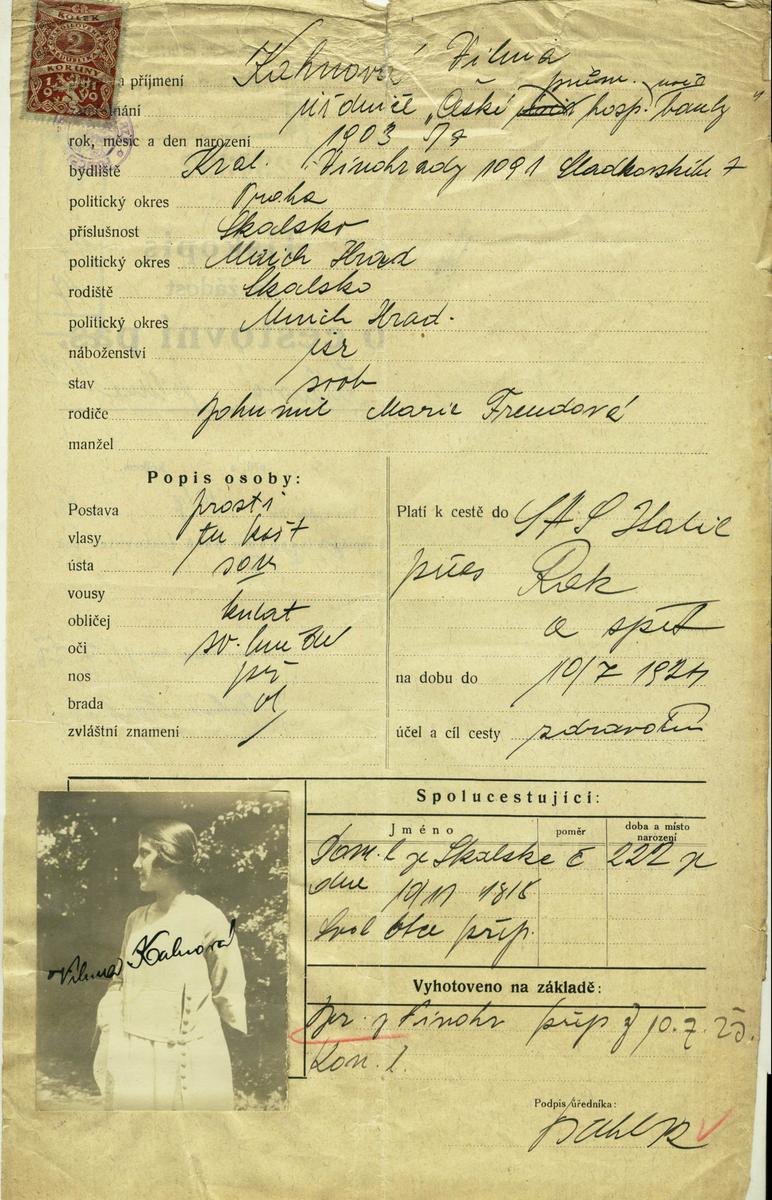 KOLEK
2
KORUNY
a příjmení Kahnová Vilma
prům.
nání úřednice „České hosp. banky"
rok, měsíc a den narození 1903 5/7
bydliště Král. Vinohrady 1091 Sladkovského 7
politický okres Praha
příslušnost Skalsko
politický okres Mnich Hrad
rodiště Skalsko
politický okres Mnich Hrad.
náboženství isr
stav svob
rodiče Bohumil Marie Freudová
manžel
Popis osoby:
Postava prostř
vlasy tm kašt
ústa soum
vousy
obličej kulat
oči sv. hnědé
nos př
brada ol
zvláštní znamení
Platí k cestě do SHS Italie
přes Rak
a zpět
na dobu do 10/7 1924
účel a cíl cesty zdravotní
Spolucestující:
Jméno poměr doba a místo narození
Dom. l ze Skalska č 222 z
dne
svol otce přip.
Vyhotoveno na základě:
z Vinohr přip 10.7.25.
Dom. l.
Podpis úředníka:
Vilma Kahnová